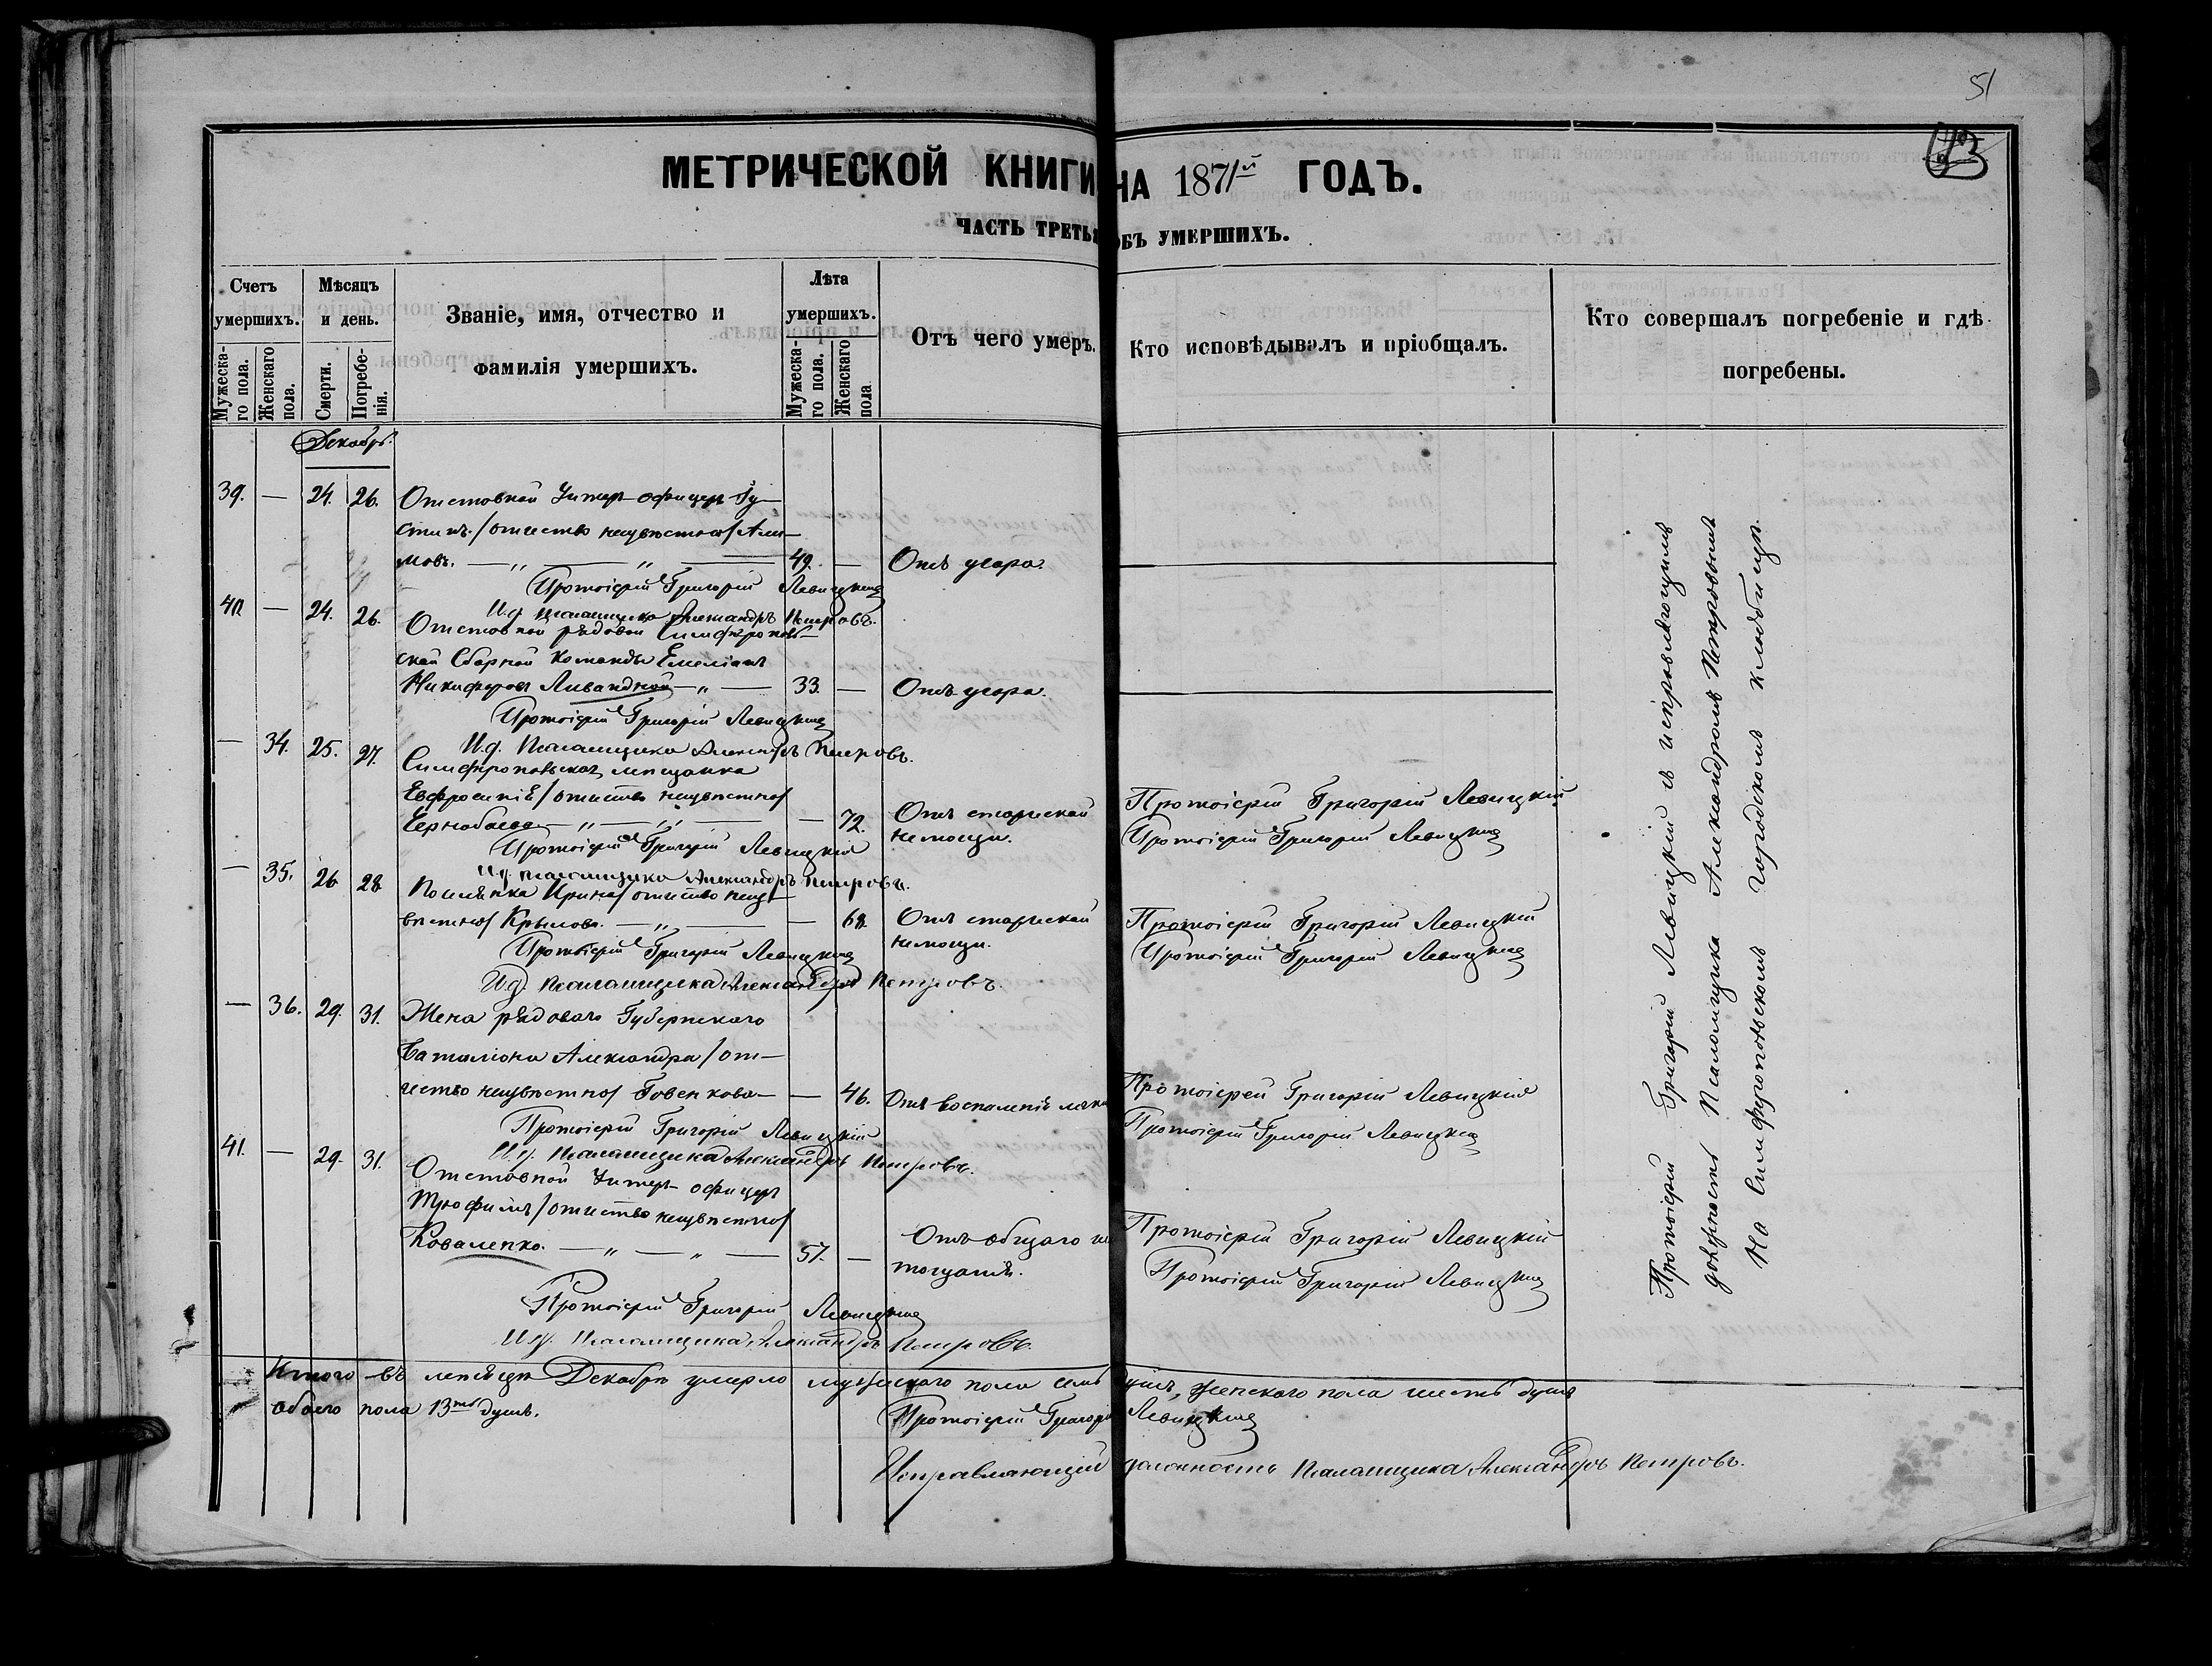 51
МЕТРИЧЕСКОЙ КНИГИ НА 1871й ГОДЪ.
ЧАСТЬ ТРЕТЬЯ ОБЪ УМЕРШИХЪ.
Счетъ умершихъ.
Мужеска-го пола.
Женскаго пола.
Мѣсяцъ и день.
Смерти.
Погребе-нія.
Званіе, имя, отчество и фамилія умершихъ.
Лѣта умершихъ.
Мужеска-го пола.
Женскаго пола
Отъ чего умеръ.
Кто исповѣдывалъ и пріобщалъ.
Кто совершалъ погребеніе и гдѣ погребены.
Декабрь.
39. — 24. 26. Отставной Унтер-офицеръ Іу-
стинъ /отчество неизвѣстно/
мовъ. — „ — „ — 49. — Отъ угара.
Протоіерей Григорій Левицкій
И.д. псаломщика Александръ Петровъ.
40 — 24. 26. Отставной рядовой Симферополь-
ской Сборной Команды Емеліанъ
Никифоровъ — „ — 33. — Отъ угара.
Протоіерей Григорій Левицкій
И.д. Псаломщика Александръ Петровъ.
— 34. 25. 27. Симферопольская мещанка
Евфросинія /отчество неизвѣстно/
Чернобаева — „ — „ — — 72. Отъ старческой
немощи.
Протоіерей Григорій Левицкій
Протоіерей Григорій Левицкій
Протоіерей Григорій Левицкій
И.д. псаломщика Александръ Петровъ.
— 35. 26 28. Ирина /отчество неиз-
вѣстно/ Крылова. — „ — — 68. Отъ старческой
немощи.
Протоіерей Григорій Левицкій
Протоіерей Григорій Левицкій
Протоіерей Григорій Левицкій
И.д. Псаломщика Александръ Петровъ.
— 36. 29. 31. Жена рядоваго Губернскаго
баталіона Александра /от-
чество неизвѣстно/ Говенкова — — 46. Отъ воспаленія
Протоіерей Григорій Левицкій
Протоіерей Григорій Левицкій
Протоіерей Григорій Левицкій
И.д. Псаломщика Александръ Петровъ.
41. — 29. 31. Отставной Унтер-офицеръ
Трофимъ /отчество неизвѣстно/
Коваленко. — „ — „ — 57. — Отъ общаго ис
тощанія.
Протоіерей Григорій Левицкій
Протоіерей Григорій Левицкій
Протоіерей Григорій Левицкій
И.д. Псаломщика Александръ Петровъ.
Протоіерей Григорій Левицкій съ исправляющимъ
должность Псаломщика Александромъ Петровымъ
На Симферопольскомъ городскомъ кладбищѣ.
Итого въ месяцѣ Декабрѣ умерло мужескаго пола семь душъ, женскаго пола шесть душъ
обоего пола 13ть душъ.
Протоіерей Григорій Левицкій
Исправляющій должность Псаломщика Александръ Петровъ.